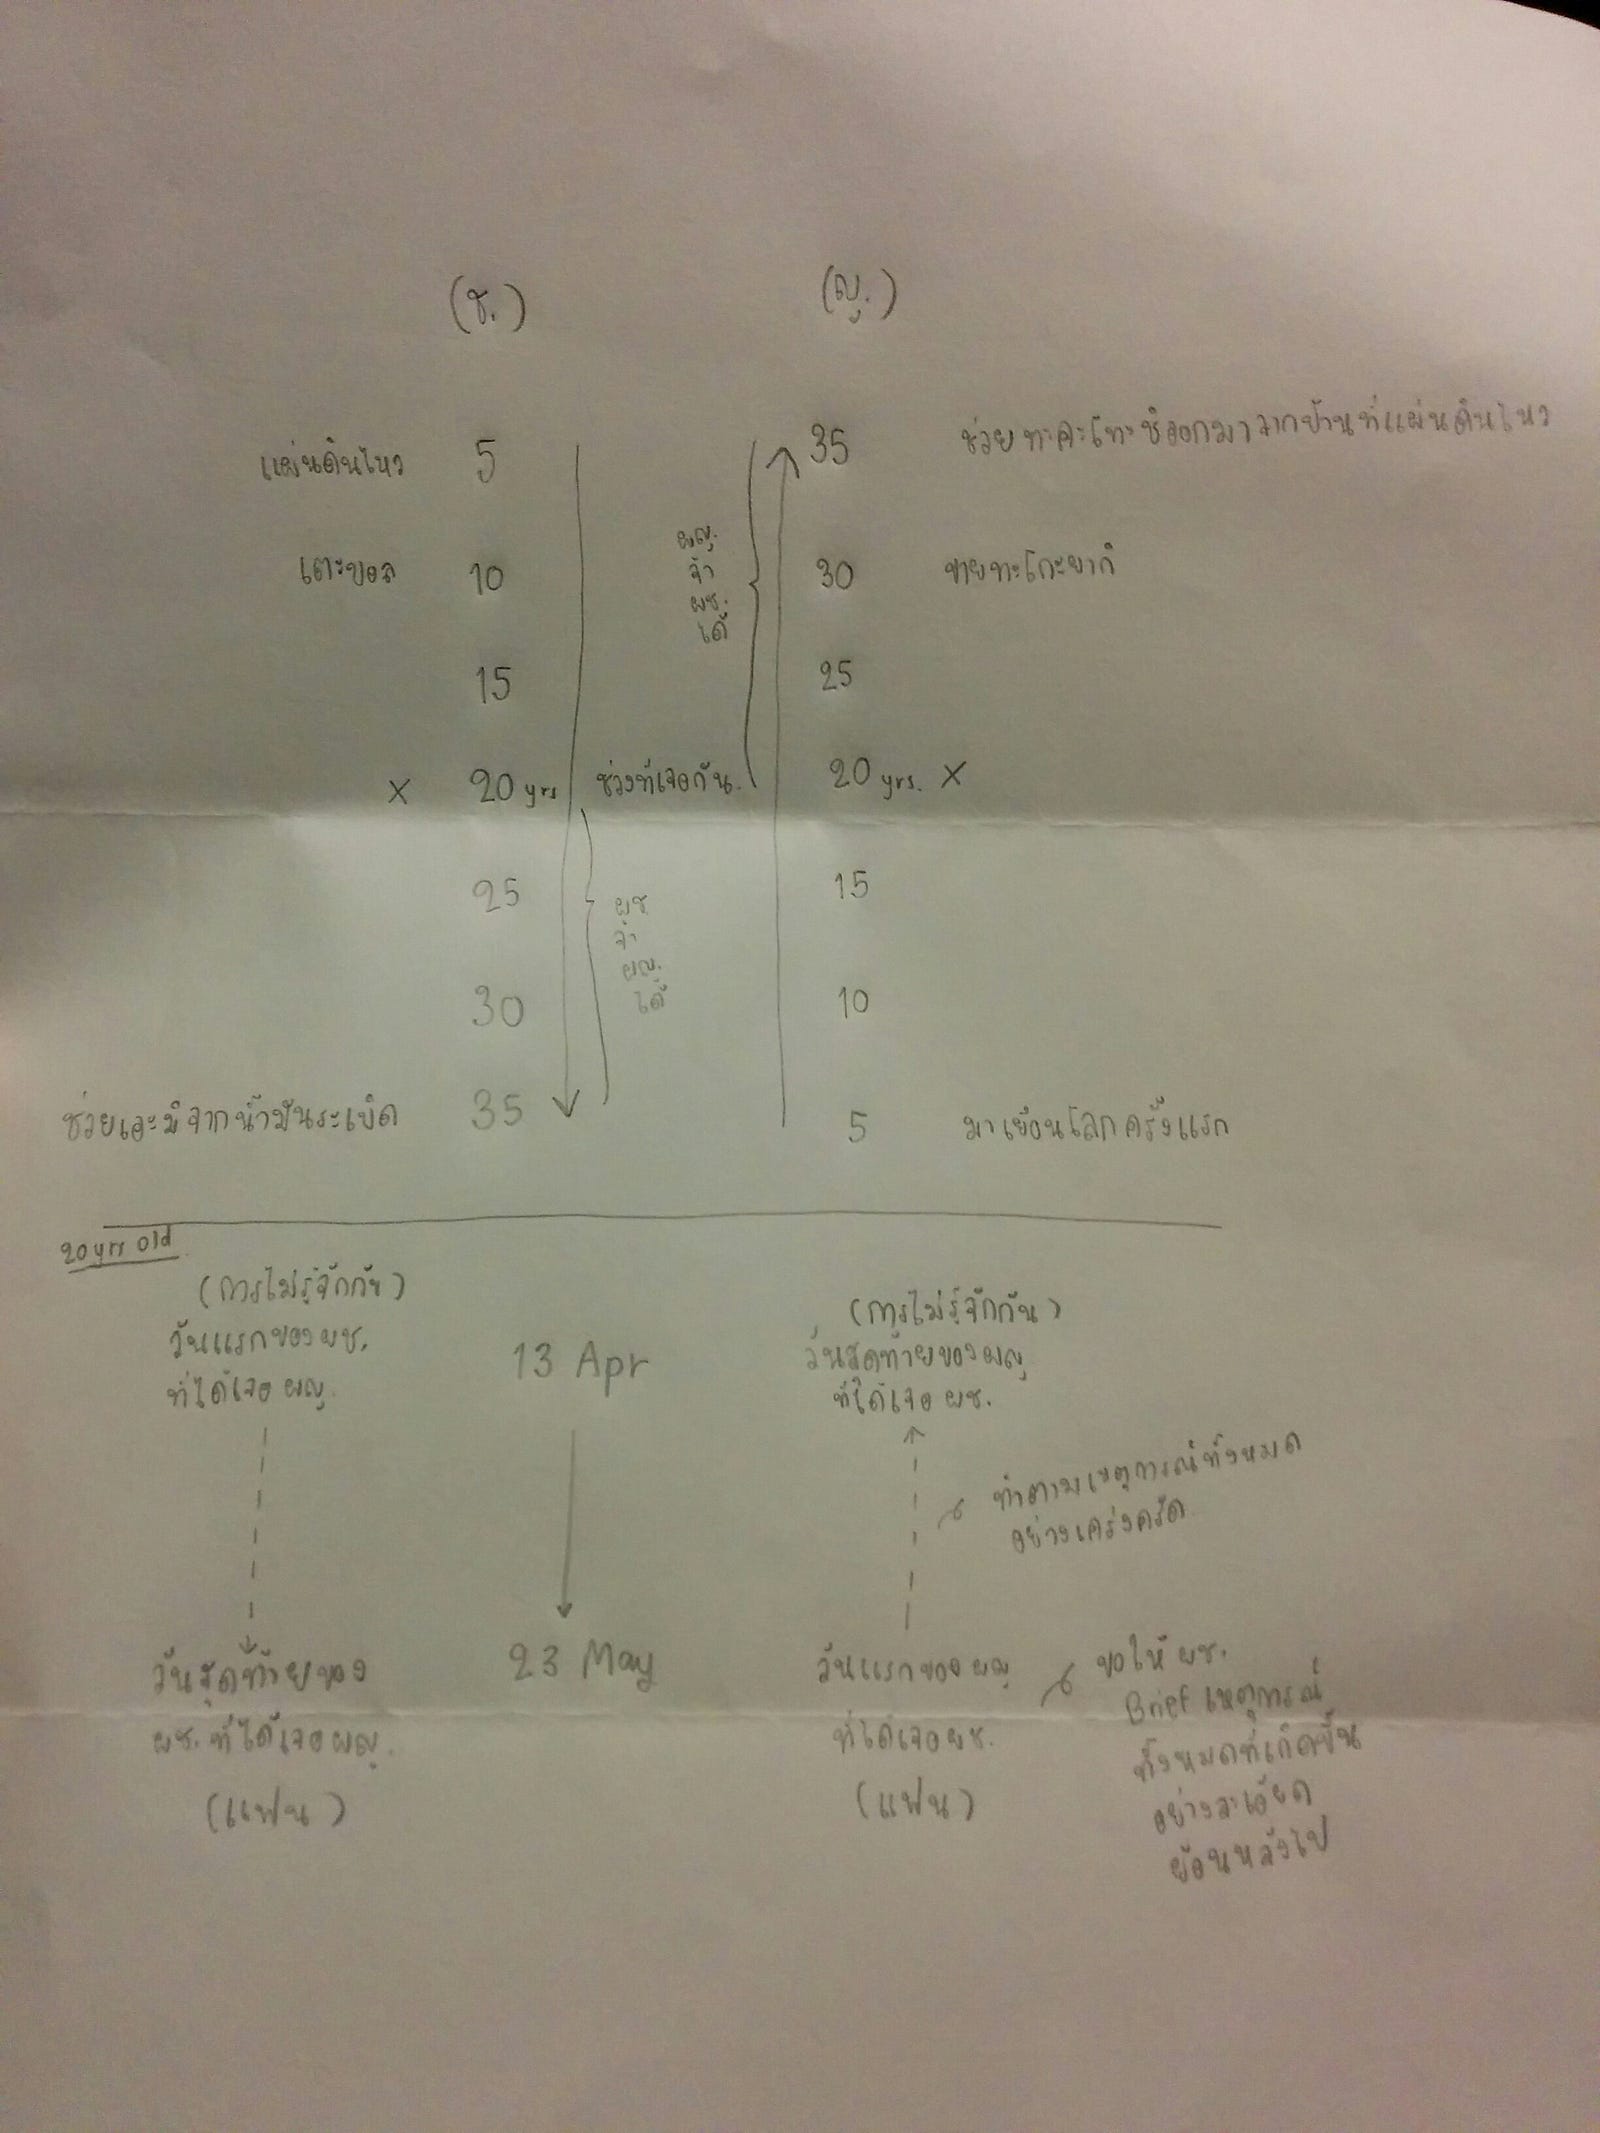 (ช.) (ญ.)
แผ่นดินไหว 5 35 ช่วยทะคะโทะชิออกมาจากบ้านที่แผ่นดินไหว
เตะบอล 10 30 ขายทะโกะยากิ
ผญ.
จำ
ผช.
ได้
15 25
X 20 yrs ช่วงที่เจอกัน. 20 yrs. X
25 15
ผช.
จำ
ผญ.
ได้
30 10
ช่วยเอะมิจากน้ำมันระเบิด 35 5 มาเยือนโลกครั้งแรก
20 yrs old
(การไม่รู้จักกัน) (การไม่รู้จักกัน)
วันแรกของผช. 13 Apr วันสุดท้ายของผญ
ที่ได้เจอ ผญ. ที่ได้เจอ ผช.
ทำตามเหตุการณ์ทั้งหมด
อย่างเคร่งครัด
วันสุดท้ายของ 23 May วันแรกของ ผญ
ผช. ที่ได้เจอ ผญ. ที่ได้เจอ ผช.
(แฟน) (แฟน)
ขอให้ ผช.
Brief เหตุการณ์
ทั้งหมดที่เกิดขึ้น
อย่างละเอียด
ย้อนหลังไป